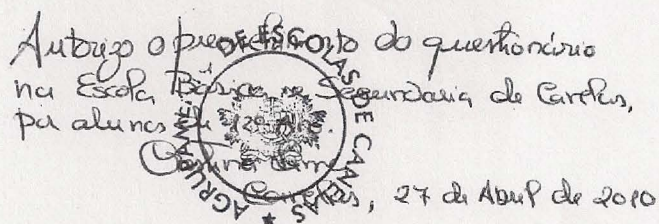 Autorizo o preenchimento do questionário
na Escola Básica e Secundária de Canelas,
por alunos do 12º Ano.
Canelas, 27 de Abril de 2010
AGRUPAMENTO DE ESCOLAS DE CANELAS